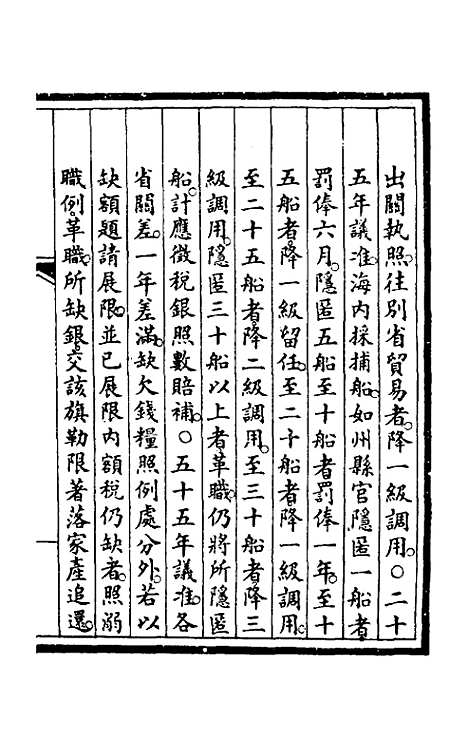 出關執照。往別省貿易者。降一級調用。○二十
五年議准。海內採捕船。如州縣官隱匿一船者。
罰俸六月。隱匿五船至十船者。罰俸一年。至十
五船者。降一級留任。至二十船者。降一級調用。
至二十五船者。降二級調用。至三十船者。降三
級調用。隱匿三十船以上者革職。仍將所隱匿
船。計應徵稅銀照數賠補。○五十五年議准。各
省關差。一年差滿。缺欠錢糧照例處分外。若以
缺額題請展限。並已展限內額稅仍缺者。照溺
職例。革職。所缺銀。交該旗勒限著落家產追還。